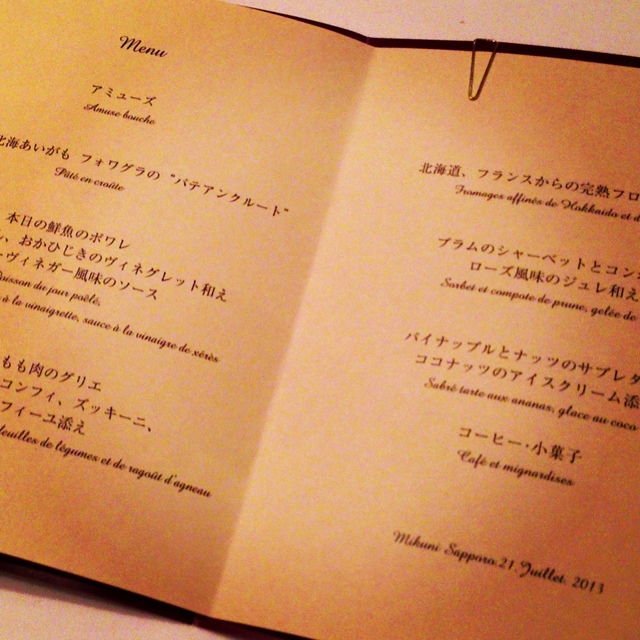 Menu
アミューズ
Amuse bouche
北海あいがも フォワグラの "パテアンクルート"
Pâté en croûte
本日の鮮魚のポワレ
、おかひじきのヴィネグレット和え
ヴィネガー風味のソース
Poisson du jour poêlé,
à la vinaigrette, sauce à la vinaigre de xérès
もも肉のグリエ
コンフィ、ズッキーニ、
フィーユ添え
feuilles de légumes et de ragoût d'agneau
北海道、フランスからの完熟フロ
Fromages affinés de Hokkaido et d
プラムのシャーベットとコン
ローズ風味のジュレ和え
Sorbet et compote de prune, gelée de
パイナップルとナッツのサブレタ
ココナッツのアイスクリーム添
Sablé tarte aux ananas, glace au coco
コーヒー・小菓子
Café et mignardises
Mikuni Sapporo.21.Juillet. 2013